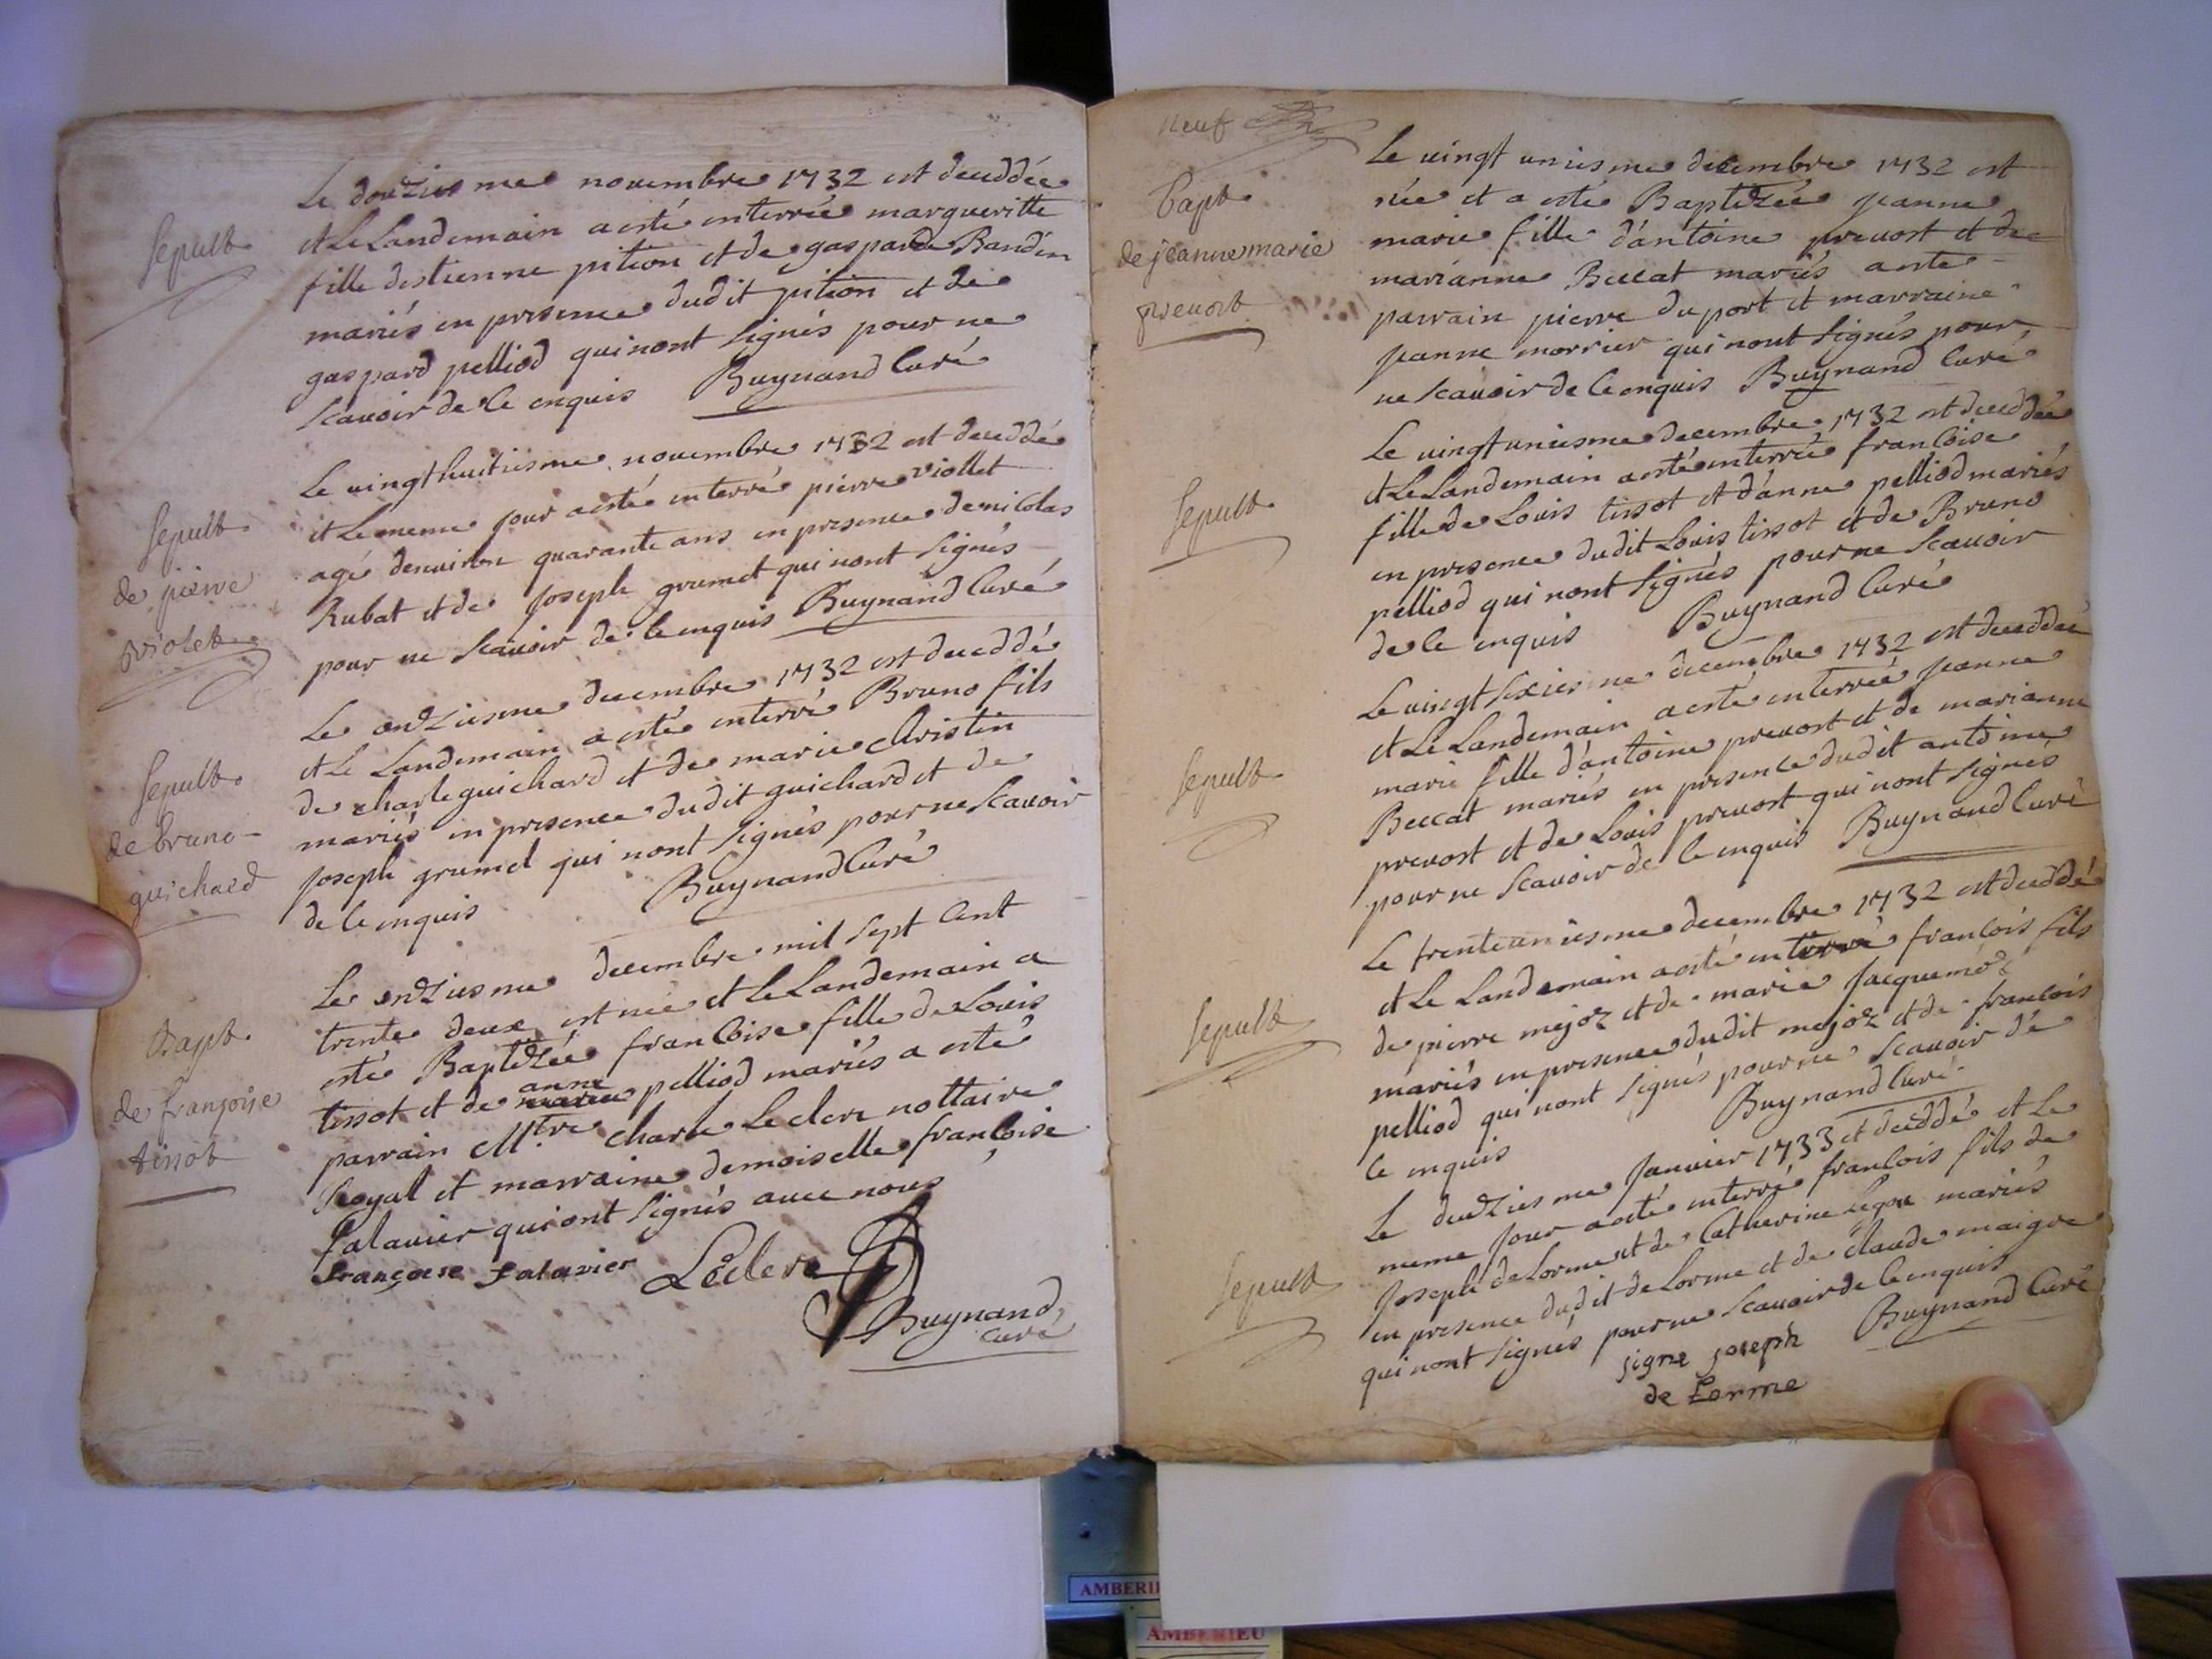 Sepult.
Le douziesme novembre 1732 est deceddée
et Le Landemain a esté enterrée margueritte
fille destienne pition et de gasparde Bandin
mariés en presence dudit pition et de
gaspard pelliod qui nont signés pour ne
scavoir de ce enquis Buynand Curé
Sepult.
de pierre
violet
Le vingt huitiesme novembre 1732 est deceddé
et Le meme jour a esté enterré pierre viollet
agé denviron quarante ans en presence de nicolas
Rubat et de joseph grumet qui nont signés
pour ne scavoir de ce enquis Buynand Curé
Sepult.
de bruno
guichard
Le onziesme decembre 1732 est deceddé
et Le Landemain a esté enterré Bruno fils
de charle guichard et de marie christin
mariés en presence dudit guichard et de
joseph grumet qui nont signés pour ne scavoir
de ce enquis Buynand Curé
Bapt.
de françoise
tissot
Le onziesme decembre mil sept Cent
trente deux est née et Le Landemain a
esté Baptizée francoise fille de Louis
tissot et de anne pelliod mariés a esté
parrain M.tre charle Leclerc nottaire
Royal et marraine demoiselle françoise
falavier qui ont signés avec nous
françoise falavier Leclerc
Buynand
curé
neuf
bapt.
de jeanne marie
prevost
Le vingt uniesme decembre 1732 est
née et a esté Baptizée jeanne
marie fille d'antoine prevost et de
marianne Beccat mariés a esté
parrain pierre du port et marraine
jeanne morrier qui nont signés pour
ne scavoir de ce enquis Buynand Curé
Sepult.
Le vingt uniesme decembre 1732 est deceddée
et Le Landemain a esté enterrée francoise
fille de Louis tissot et d'anne pelliod mariés
en presence dudit Louis tissot et de Bruno
pelliod qui nont signés pour ne scavoir
de ce enquis Buynand Curé
Sepult.
Le vingt sixiesme decembre 1732 est deceddée
et Le Landemain a esté enterrée jeanne
marie fille d'antoine prevost et de marianne
Beccat mariés en presence dudit antoine
prevost et de Louis prevost qui nont signés
pour ne scavoir de ce enquis Buynand Curé
Sepult.
Le trente uniesme decembre 1732 est deceddé
et Le Landemain a esté enterré francois fils
de pierre mejoz et de marie jacquemoz
mariés en presence dudit mejoz et de francois
pelliod qui nont signés pour ne scavoir de
ce enquis Buynand Curé
Sepult.
Le deuziesme janvier 1733 et deceddé et Le
meme jour a esté enterré francois fils de
joseph de Lorme et de Catherine mariés
en presence dudit de Lorme et de claude maigre
qui nont signés pour ne scavoir de ce enquis
signe joseph Buynand Curé
de Lorme
AMBERIEU